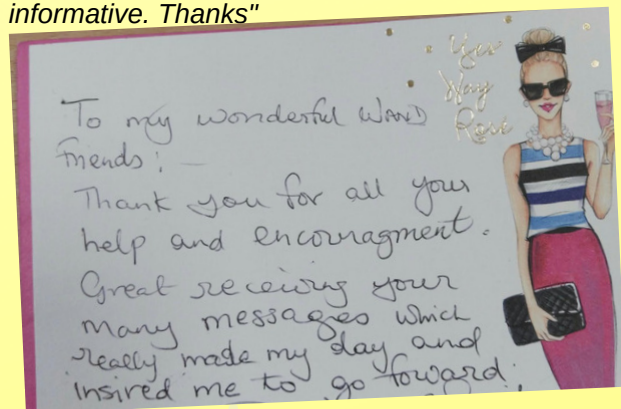 informative. Thanks"
Yes
Way
Rosé
To my wonderful WAND
friends: –
Thank you for all your
help and encouragment.
Great receiving your
many messages which
really made my day and
insired me to go forward.